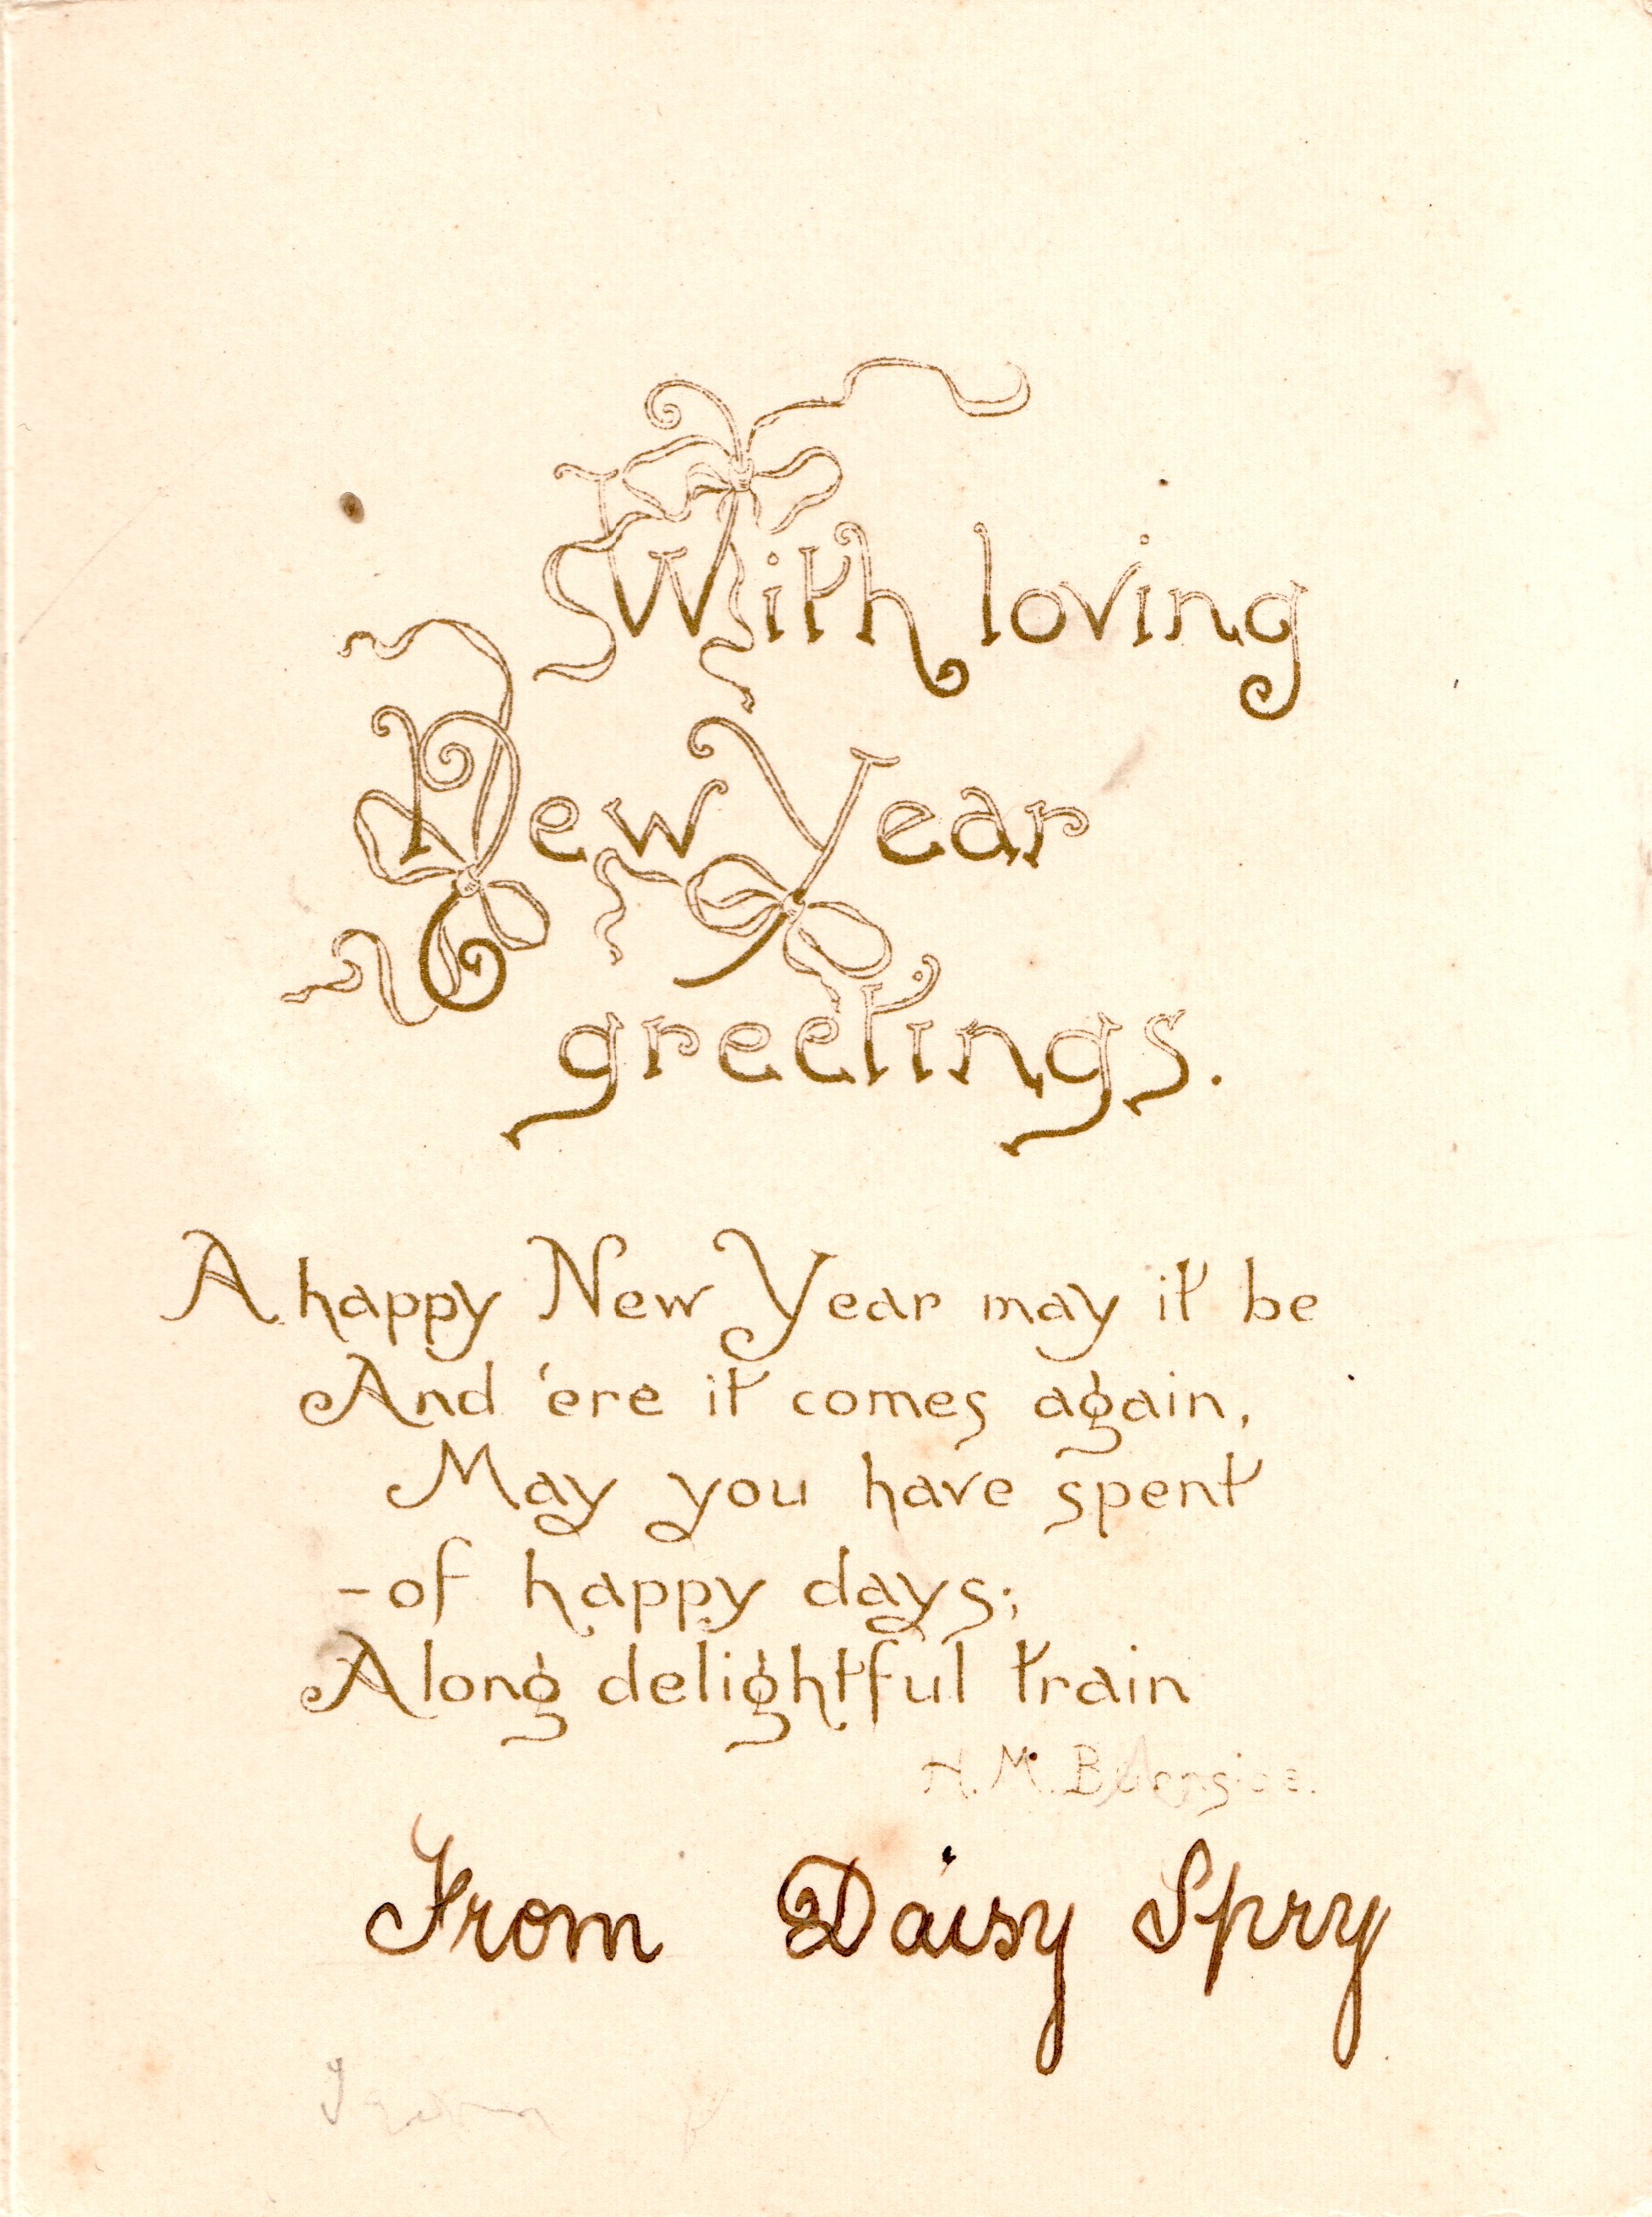 With loving
New Year
greetings.
A happy New Year may it be
And 'ere it comes again,
May you have spent
- of happy days;
A long delightful train
H. M. Burnside.
From Daisy Spry